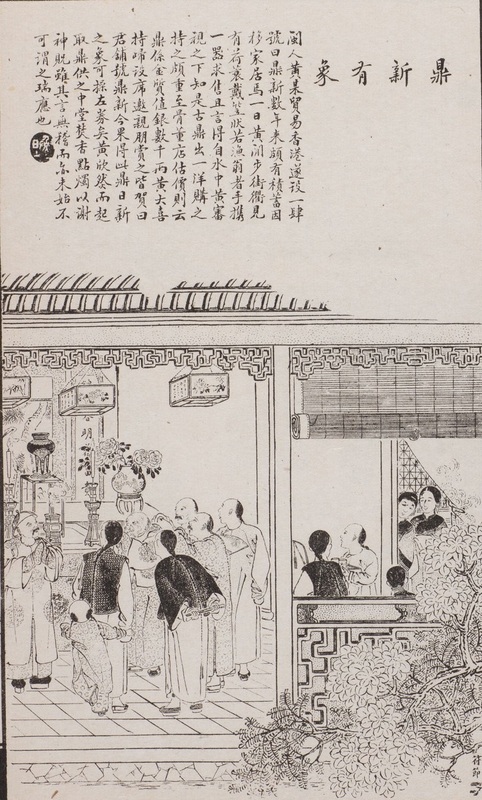 鼎新有象
閩人黃某貿易香港遂設一肆
號曰鼎新數年來頗有積蓄因
移家居焉一日黃閒步街衢見
有荷蓑戴笠狀若漁翁者手携
一器求售且言得自水中黃審
視之下知是古鼎出一洋購之
持之頗重至骨董店估價則云
鼎係金質值銀數千両黃大喜
持歸設席邀親朋賞之皆賀曰
君舖號鼎新今果得此鼎日新
之象可操左券矣黃欣然而起
取鼎供之中堂焚香點燭以謝
神貺雖其言無稽而亦未始不
可謂之瑞應也
明
符節